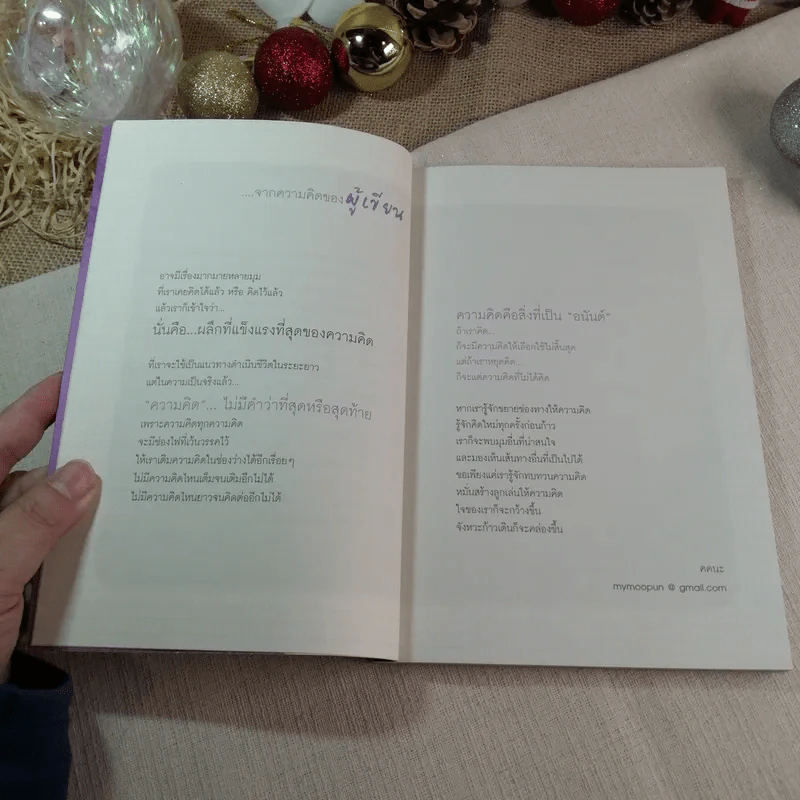 ....จากความคิดของผู้เขียน
อาจมีเรื่องมากมายหลายมุม
ที่เราเคยคิดได้แล้ว หรือ คิดไว้แล้ว
แล้วเราก็เข้าใจว่า...
นั่นคือ...ผลึกที่แข็งแรงที่สุดของความคิด
ที่เราจะใช้เป็นแนวทางดำเนินชีวิตในระยะยาว
แต่ในความเป็นจริงแล้ว...
"ความคิด"... ไม่มีคำว่าที่สุดหรือสุดท้าย
เพราะความคิดทุกความคิด
จะมีช่องไฟที่เว้นวรรคไว้
ให้เราเติมความคิดในช่องว่างได้อีกเรื่อยๆ
ไม่มีความคิดไหนเต็มจนเติมอีกไม่ได้
ไม่มีความคิดไหนยาวจนคิดต่ออีกไม่ได้
ความคิดคือสิ่งที่เป็น "อนันต์"
ถ้าเราคิด...
ก็จะมีความคิดให้เลือกใช้ไม่สิ้นสุด
แต่ถ้าเราหยุดคิด...
ก็จะแค่ความคิดที่ไม่ได้คิด
หากเรารู้จักขยายช่องทางให้ความคิด
รู้จักคิดใหม่ทุกครั้งก่อนก้าว
เราก็จะพบมุมอื่นที่น่าสนใจ
และมองเห็นเส้นทางอื่นที่เป็นไปได้
ขอเพียงแค่เรารู้จักทบทวนความคิด
หมั่นสร้างลูกเล่นให้ความคิด
ใจของเราก็จะกว้างขึ้น
จังหวะก้าวเดินก็จะคล่องขึ้น
คคนะ
mymoopun @ gmail.com